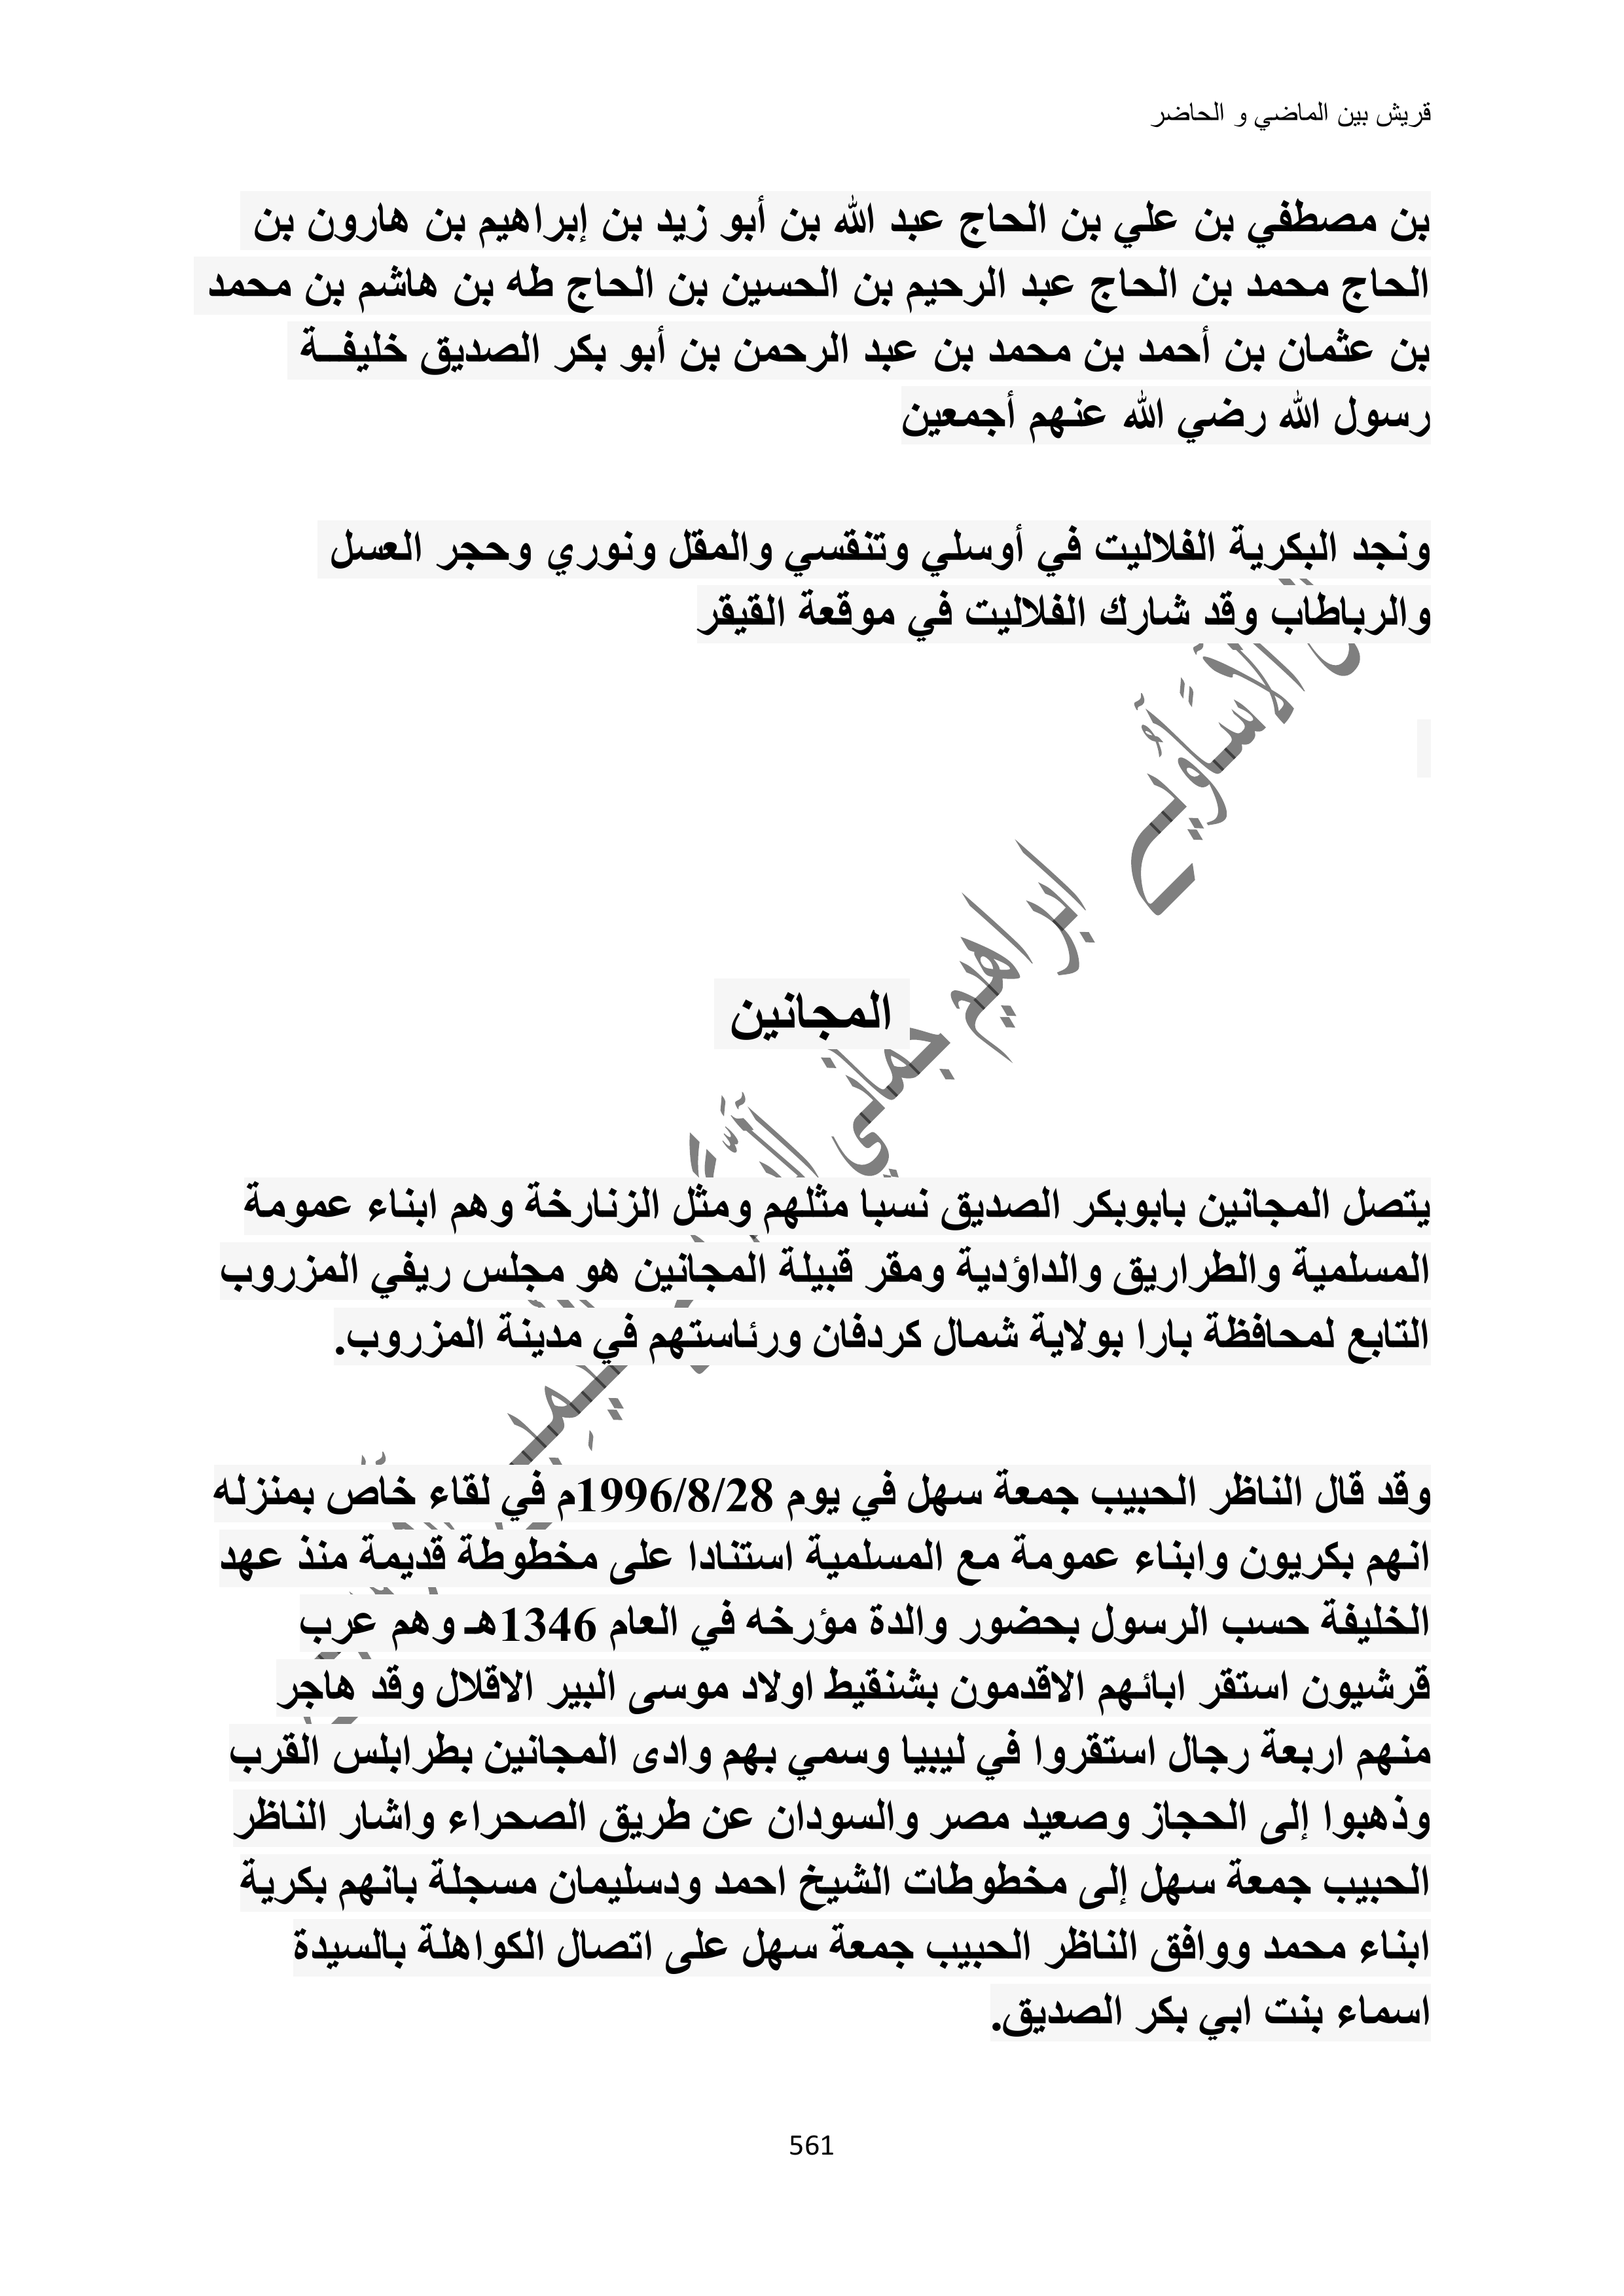 قريش بين الماضي و الحاضر
بن مصطفي بن علي بن الحاج عبد الله بن أبو زيد بن إبراهيم بن هارون بن
الحاج محمد بن الحاج عبد الرحيم بن الحسين بن الحاج طه بن هاشم بن محمد
بن عثمان بن أحمد بن محمد بن عبد الرحمن بن أبو بكر الصديق خليفــة
رسول الله رضي الله عنهم أجمعين
ونجد البكرية الفلاليت في أوسلي وتنقسي والمقل ونوري وحجر العسل
والرباطاب وقد شارك الفلاليت في موقعة القيقر
ابراهيم جماني
المجانين
يتصل المجانين بابوبكر الصديق نسبا مثلهم ومثل الزنارخة وهم ابناء عمومة
المسلمية والطراريق والداؤدية ومقر قبيلة المجانين هو مجلس ريفي المزروب
التابع لمحافظة بارا بولاية شمال كردفان ورئاستهم في مدينة المزروب.
وقد قال الناظر الحبيب جمعة سهل في يوم 1996/8/28م في لقاء خاص بمنزله
انهم بكريون وابناء عمومة مع المسلمية استنادا على مخطوطة قديمة منذ عهد
الخليفة حسب الرسول بحضور والدة مؤرخه في العام 1346هـ وهم عرب
قرشيون استقر ابائهم الاقدمون بشنقيط اولاد موسى البير الاقلال وقد هاجر
منهم اربعة رجال استقروا في ليبيا وسمي بهم وادى المجانين بطرابلس القرب
وذهبوا إلى الحجاز وصعيد مصر والسودان عن طريق الصحراء واشار الناظر
الحبيب جمعة سهل إلى مخطوطات الشيخ احمد ودسليمان مسجلة بانهم بكرية
ابناء محمد ووافق الناظر الحبيب جمعة سهل على اتصال الكواهلة بالسيدة
اسماء بنت ابي بكر الصديق.
561